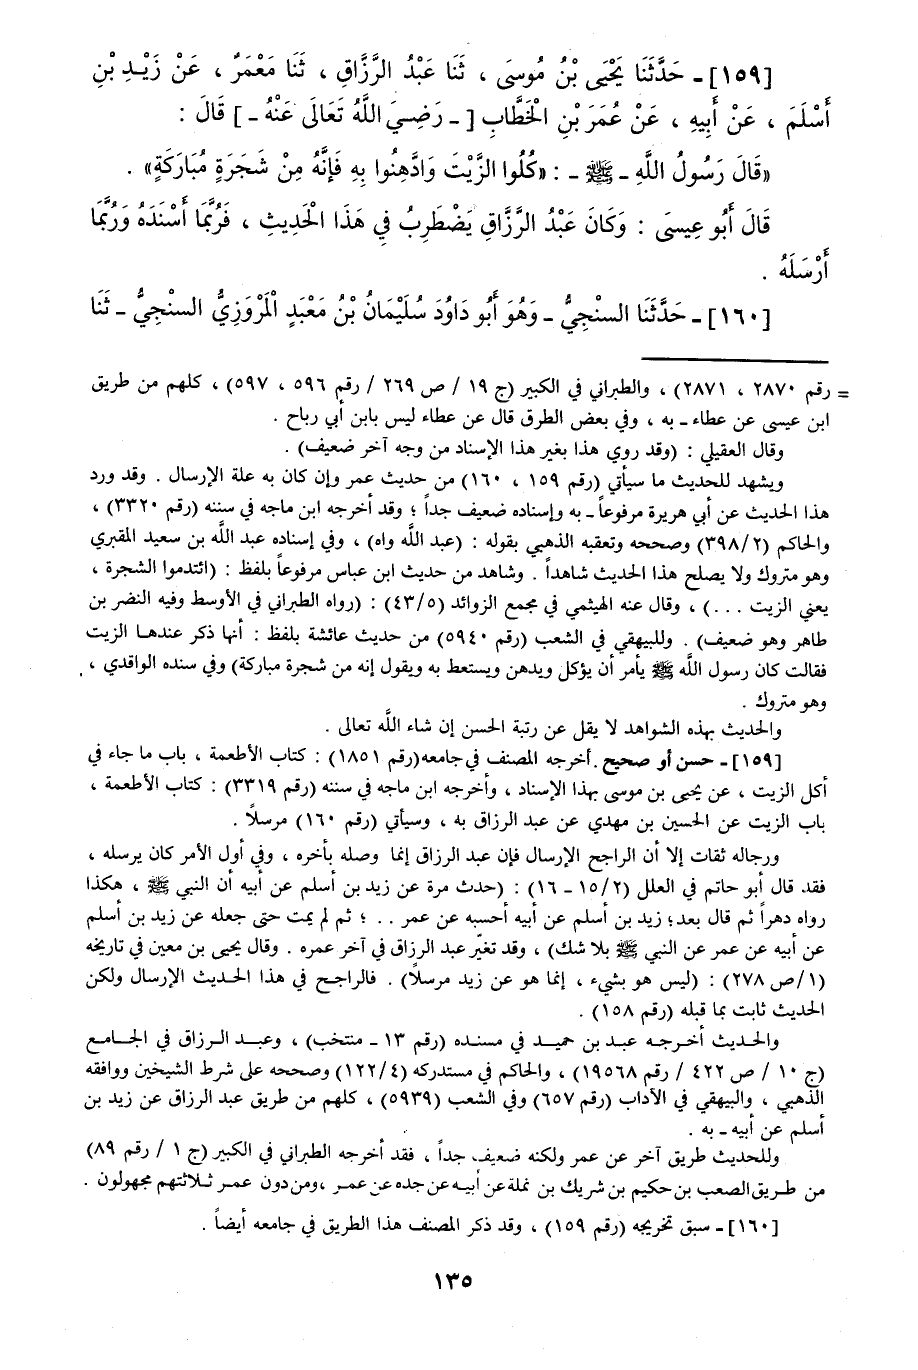 [١٥٩] ـ حَدَّثَنَا يَحْيَى بْنُ مُوسَى ، ثَنَا عَبْدُ الرَّزَّاقِ ، ثَنَا مَعْمَرٌ ، عَنْ زَيْدِ بْنِ
أَسْلَمَ ، عَنْ أَبِيهِ ، عَنْ عُمَرَ بْنِ الْخَطَّابِ [ ـ رَضِيَ اللَّهُ تَعَالَى عَنْهُ ـ ] قَالَ :
«قَالَ رَسُولُ اللَّهِ ـ ﷺ ـ : «كُلُوا الزَّيْتَ وَادَّهِنُوا بِهِ فَإِنَّهُ مِنْ شَجَرَةٍ مُبَارَكَةٍ» .
قَالَ أَبُو عِيسَى : وَكَانَ عَبْدُ الرَّزَّاقِ يَضْطَرِبُ فِي هَذَا الْحَدِيثِ ، فَرُبَّمَا أَسْنَدَهُ وَرُبَّمَا
أَرْسَلَهُ .
[١٦٠] ـ حَدَّثَنَا السنْجِيُّ ـ وَهُوَ أَبُو دَاوُدَ سُلَيْمَانُ بْنُ مَعْبَدٍ الْمَرْوَزِيُّ السنْجِيُّ ـ ثَنَا
= رقم ٢٨٧٠ ، ٢٨٧١) ، والطبراني في الكبير (ج ١٩ / ص ٢٦٩ / رقم ٥٩٦ ، ٥٩٧) ، كلهم من طريق
ابن عيسى عن عطاء ـ به ، وفي بعض الطرق قال عن عطاء ليس بابن أبي رباح .
وقال العقيلي : (وقد روي هذا بغير هذا الإسناد من وجه آخر ضعيف) .
ويشهد للحديث ما سيأتي (رقم ١٥٩ ، ١٦٠) من حديث عمر وإن كان به علة الإرسال . وقد ورد
هذا الحديث عن أبي هريرة مرفوعاً ـ به وإسناده ضعيف جداً ؛ وقد أخرجه ابن ماجه في سننه (رقم ٣٣٢٠) ،
والحاكم (٣٩٨/٢) وصححه وتعقبه الذهبي بقوله : (عبد اللَّه واه) ، وفي إسناده عبد اللَّه بن سعيد المقبري
وهو متروك ولا يصلح هذا الحديث شاهداً . وشاهد من حديث ابن عباس مرفوعاً بلفظ : (ائتدموا الشجرة ،
يعني الزيت ...) ، وقال عنه الهيثمي في مجمع الزوائد (٤٣/٥) : (رواه الطبراني في الأوسط وفيه النضر بن
طاهر وهو ضعيف) . وللبيهقي في الشعب (رقم ٥٩٤٠) من حديث عائشة بلفظ : أنها ذكر عندها الزيت
فقالت كان رسول اللَّه ﷺ يأمر أن يؤكل ويدهن ويستعط به ويقول إنه من شجرة مباركة) وفي سنده الواقدي ،
وهو متروك .
والحديث بهذه الشواهد لا يقل عن رتبة الحسن إن شاء اللَّه تعالى .
[١٥٩] ـ حسن أو صحيح . أخرجه المصنف في جامعه (رقم ١٨٥١) : كتاب الأطعمة ، باب ما جاء في
أكل الزيت ، عن يحيى بن موسى بهذا الإسناد ، وأخرجه ابن ماجه في سننه (رقم ٣٣١٩) : كتاب الأطعمة ،
باب الزيت عن الحسين بن مهدي عن عبد الرزاق به ، وسيأتي (رقم ١٦٠) مرسلاً .
ورجاله ثقات إلا أن الراجح الإرسال فإن عبد الرزاق إنما وصله بأخره ، وفي أول الأمر كان يرسله ،
فقد قال أبو حاتم في العلل (١٥/٢ ـ ١٦) : (حدث مرة عن زيد بن أسلم عن أبيه أن النبي ﷺ ، هكذا
رواه دهراً ثم قال بعد؛ زيد بن أسلم عن أبيه أحسبه عن عمر .. ؛ ثم لم يمت حتى جعله عن زيد بن أسلم
عن أبيه عن عمر عن النبي ﷺ بلا شك) ، وقد تغيّر عبد الرزاق في آخر عمره . وقال يحيى بن معين في تاريخه
(١/ص ٢٧٨) : (ليس هو بشيء ، إنما هو عن زيد مرسلاً) . فالراجح في هذا الحديث الإرسال ولكن
الحديث ثابت بما قبله (رقم ١٥٨) .
والحديث أخرجه عبد بن حميد في مسنده (رقم ١٣ ـ منتخب) ، وعبد الرزاق في الجامع
(ج ١٠ / ص ٤٢٢ / رقم ١٩٥٦٨) ، والحاكم في مستدركه (١٢٢/٤) وصححه على شرط الشيخين ووافقه
الذهبي ، والبيهقي في الأداب (رقم ٦٥٧) وفي الشعب (٥٩٣٩) ، كلهم من طريق عبد الرزاق عن زيد بن
أسلم عن أبيه ـ به .
وللحديث طريق آخر عن عمر ولكنه ضعيف جداً ، فقد أخرجه الطبراني في الكبير (ج ١ / رقم ٨٩)
من طريق الصعب بن حكيم بن شريك بن نملة عن أبيه عن جده عن عمر ، ومن دون عمر ثلاثتهم مجهولون .
[١٦٠] ـ سبق تخريجه (رقم ١٥٩) ، وقد ذكر المصنف هذا الطريق في جامعه أيضاً .
١٣٥